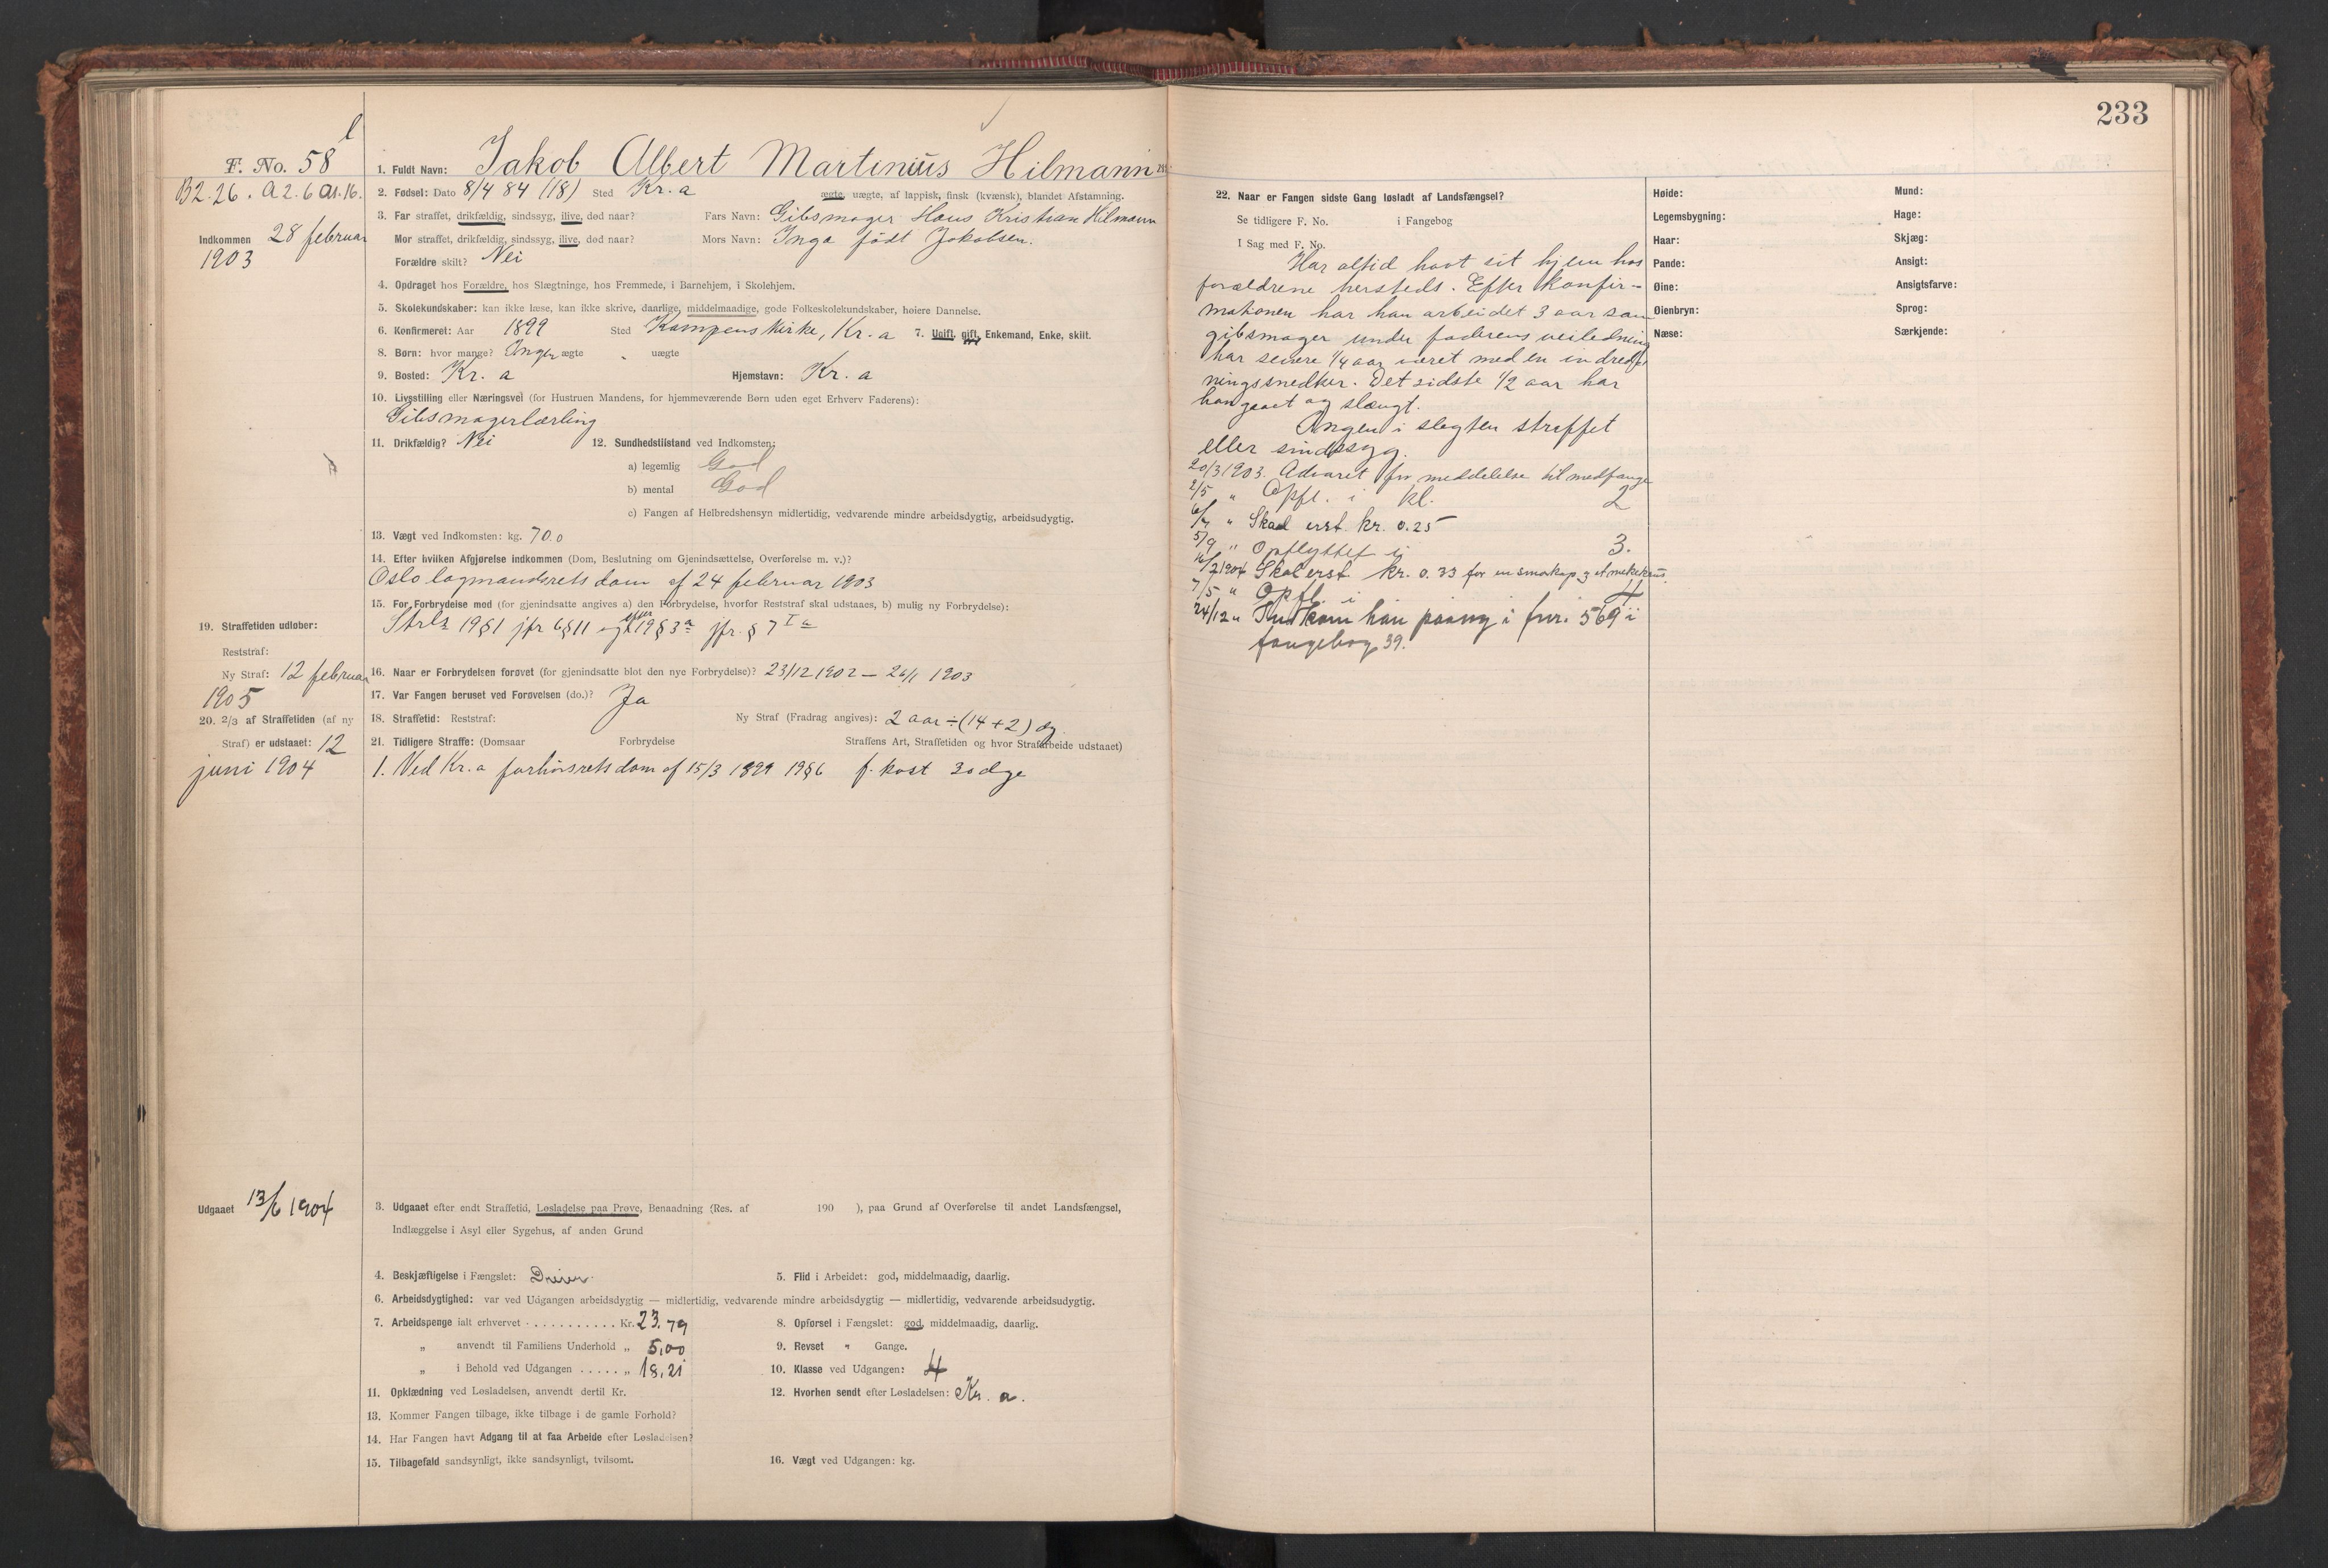 233
F. No. 58
B2.26. A2.6 A1.16.
Indkommen 28 februar
1903
1. Fuldt Navn: Jakob Albert Martinius Hilmann
2. Fødsel: Dato 8/4 84 (18) Sted Kr.a ægte, uægte, af lappisk, finsk (kvænsk), blandet Afstamning.
3. Far straffet, drikfældig, sindssyg, ilive, død naar? Fars Navn: Gibsmager Hans Kristian Hilmann
Mor straffet, drikfældig, sindssyg, ilive, død naar? Mors Navn: Inga født Jakobsen.
Forældre skilt? Nei
4. Opdraget hos Forældre, hos Slægtninge, hos Fremmede, i Barnehjem, i Skolehjem.
5. Skolekundskaber: kan ikke læse, kan ikke skrive, daarlige, middelmaadige, gode Folkeskolekundskaber, høiere Dannelse.
6. Konfirmeret: Aar 1899 Sted Kampens kirke, Kr.a 7. Ugift, gift, Enkemand, Enke, skilt.
8. Børn: hvor mange? Ingen ægte " uægte
9. Bosted: Kr. a Hjemstavn: Kr. a
10. Livsstilling eller Næringsvei (for Hustruen Mandens, for hjemmeværende Børn uden eget Erhverv Faderens):
Gibsmagerlærling
11. Drikfældig? Nei 12. Sundhedstilstand ved Indkomsten:
a) legemlig God
b) mental God
c) Fangen af Helbredshensyn midlertidig, vedvarende mindre arbeidsdygtig, arbeidsudygtig.
13. Vægt ved Indkomsten: kg. 70.0
14. Efter hvilken Afgjørelse indkommen (Dom, Beslutning om Gjenindsættelse, Overførelse m. v.)?
Oslo lagmandsrets dom af 24 februar 1903
15. For Forbrydelse mod (for gjenindsatte angives a) den Forbrydelse, hvorfor Reststraf skal udstaaes, b) mulig ny Forbrydelse):
Strls 19§1 jfr 6§11 og 19§3a jfr. § 7 I a
19. Straffetiden udløber:
Reststraf:
Ny Straf: 12 februar
1905
16. Naar er Forbrydelsen forøvet (for gjenindsatte blot den nye Forbrydelse)? 23/12 1902 — 26/1 1903
17. Var Fangen beruset ved Forøvelsen (do.)? Ja
18. Straffetid: Reststraf: Ny Straf (Fradrag angives): 2 aar ÷ (14+2) dg.
20. 2/3 af Straffetiden (af ny
Straf) er udstaaet: 12
juni 1904
21. Tidligere Straffe: (Domsaar Forbrydelse Straffens Art, Straffetiden og hvor Strafarbeide udstaaet)
1. Ved Kr.a forhørsrets dom af 15/3 1899 19§6 f. kost 30 dge
Udgaaet 13/6 1904
3. Udgaaet efter endt Straffetid, Løsladelse paa Prøve, Benaadning (Res. af 190 ), paa Grund af Overførelse til andet Landsfængsel,
Indlæggelse i Asyl eller Sygehus, af anden Grund
4. Beskjæftigelse i Fængslet: Driver 5. Flid i Arbeidet: god, middelmaadig, daarlig.
6. Arbeidsdygtighed: var ved Udgangen arbeidsdygtig — midlertidig, vedvarende mindre arbeidsdygtig — midlertidig, vedvarende arbeidsudygtig.
7. Arbeidspenge ialt erhvervet . . . . . . . . . . . Kr. 23.79 8. Opførsel i Fængslet: god, middelmaadig, daarlig.
" anvendt til Familiens Underhold " 5,00 9. Revset " Gange.
" i Behold ved Udgangen . . . . . " 18,21 10. Klasse ved Udgangen: 4
11. Opklædning ved Løsladelsen, anvendt dertil Kr. 12. Hvorhen sendt efter Løsladelsen: Kr. a.
13. Kommer Fangen tilbage, ikke tilbage i de gamle Forhold?
14. Har Fangen havt Adgang til at faa Arbeide efter Løsladelsen?
15. Tilbagefald sandsynligt, ikke sandsynligt, tvilsomt. 16. Vægt ved Udgangen: kg.
22. Naar er Fangen sidste Gang løsladt af Landsfængsel?
Se tidligere F. No. i Fangebog
I Sag med F. No.
Har altid havt sit hjem hos
forældrene hersteds. Efter konfir-
mationen har han arbeidet 3 aar som
gibsmager under faderens veiledning
har senere 1/4 aar været med en indred-
ningssnedker. Det sidste 1/2 aar har
han gaaet og slængt.
Ingen i slegten straffet
eller sindssyg.
20/3 1903. Advaret for meddelelse til medfange
2/5 " Opfl. i kl. 2
6/7 " Skad erst. kr. 0.25
5/9 " Opflyttet i 3.
16/2 1904 Skaderst. kr. 0.33 for en smørkop og et melkekrus.
7/5 " Opfl. i 4
24/12 " Indkom han paany i fnr. 569 i
fangebog 39.
Høide:
Legemsbygning:
Haar:
Pande:
Øine:
Øienbryn:
Næse:
Mund:
Hage:
Skjæg:
Ansigt:
Ansigtsfarve:
Sprog:
Særkjende: